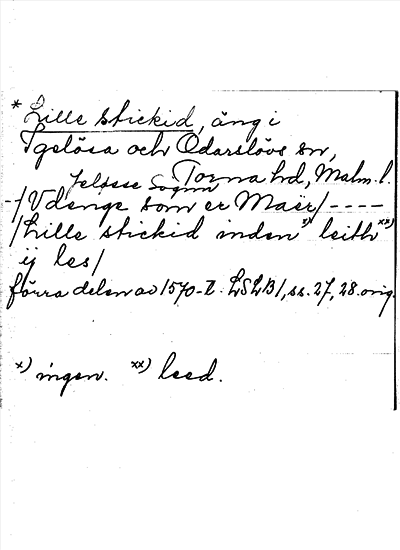 * Lille stickid, äng i
Igelösa och Odarslövs sn,
Torna hd, Malm. l.
-/ Jelsse Sognn
Vdenge som er Maër/----
/Lille stickid inden x) leith xx)
ij les/
förra delen av 1570-t. LSLB1, ss. 27, 28. orig.
x) ingen. xx) leed.